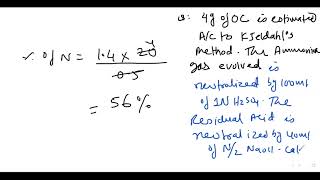 Q: 4g of OC is estimated
A/C to Kjeldahl's
Method. The Ammonia
gas evolved is
neutralized by 100ml
of 1N H2SO4. The
Residual Acid is
neutralized by 40ml
of N/2 NaOH. Cal
% of N = 1.4 x 20
0.5
= 56%